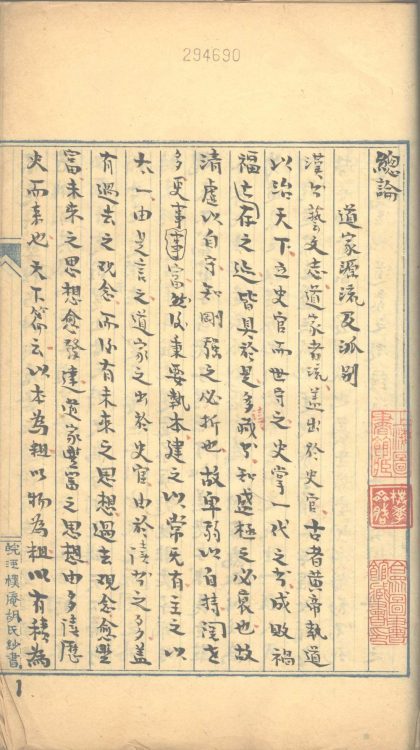 294690
總論
道家源流及派別
漢書藝文志道家者流蓋出於史官古者黃帝執道
以治天下立史官而世守之史掌一代之成敗禍
福亡存之跡皆具於是多識往知盛極之必衰也故
清虛以自守知剛強之必折也故卑弱以自持閱世
多更事事富然後秉要執本建之以常无有主之以
太一由是言之道家之出於史官由於讀書之多蓋
有過去之观念而后有未來之思想過去观念愈豐
富未來之思想愈發達道家豐富之思想由多讀歷
史而來也天下篇云以本為粗以物為粗以有積為
皖涇樸庵胡氏鈔書
1